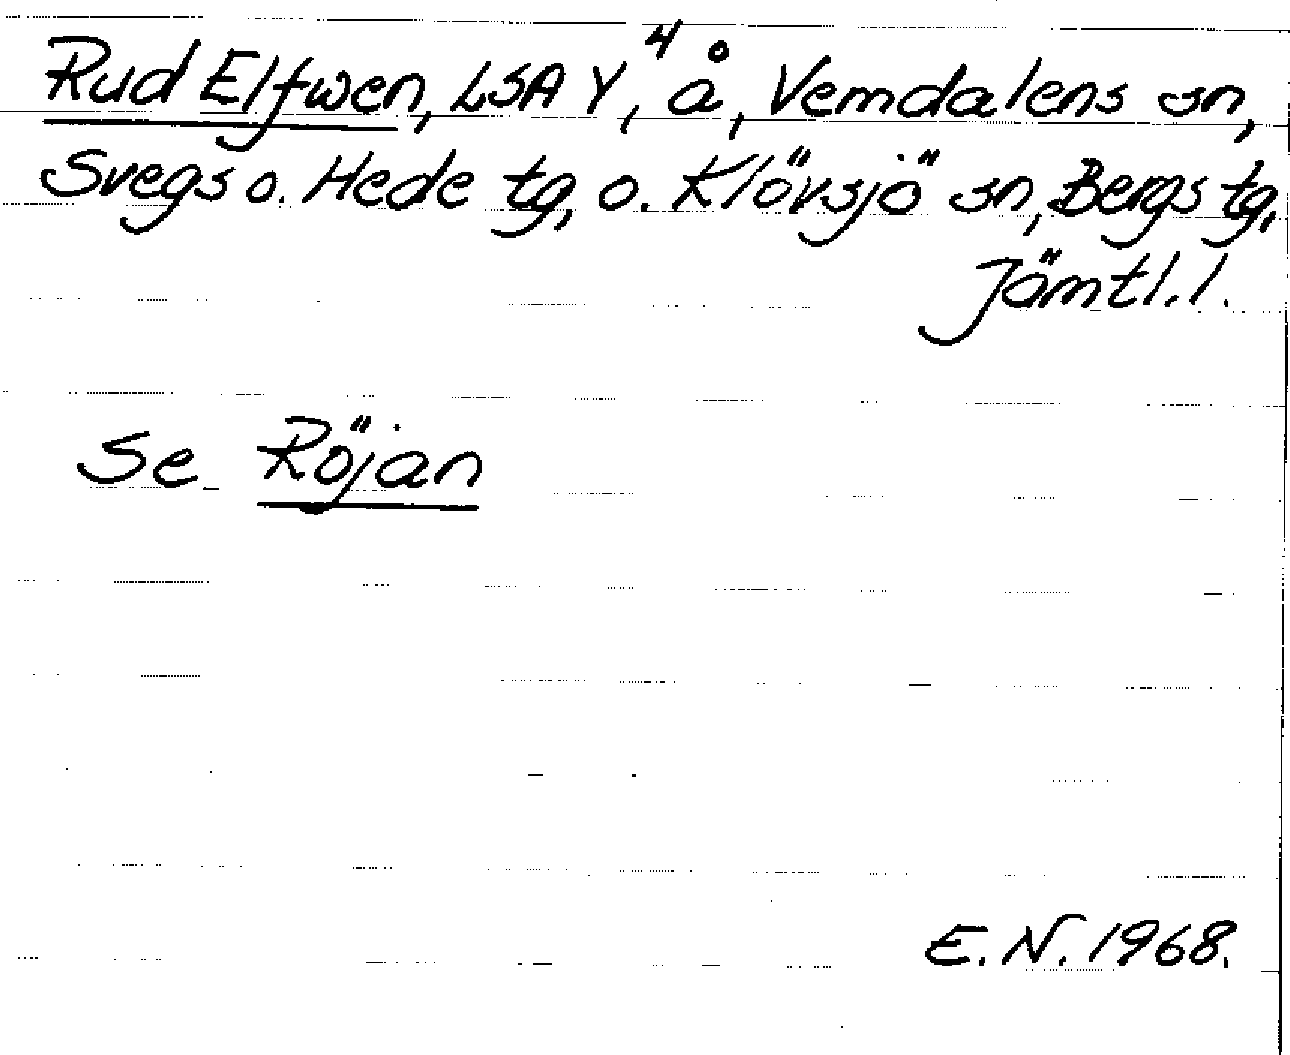 Rud Elfwen, LSA Y⁴, å, Vemdalens sn,
Svegs o. Hede tg, o. Klövsjö sn, Bergs tg,
Jämtl. l.
Se Röjan
E. N. 1968.